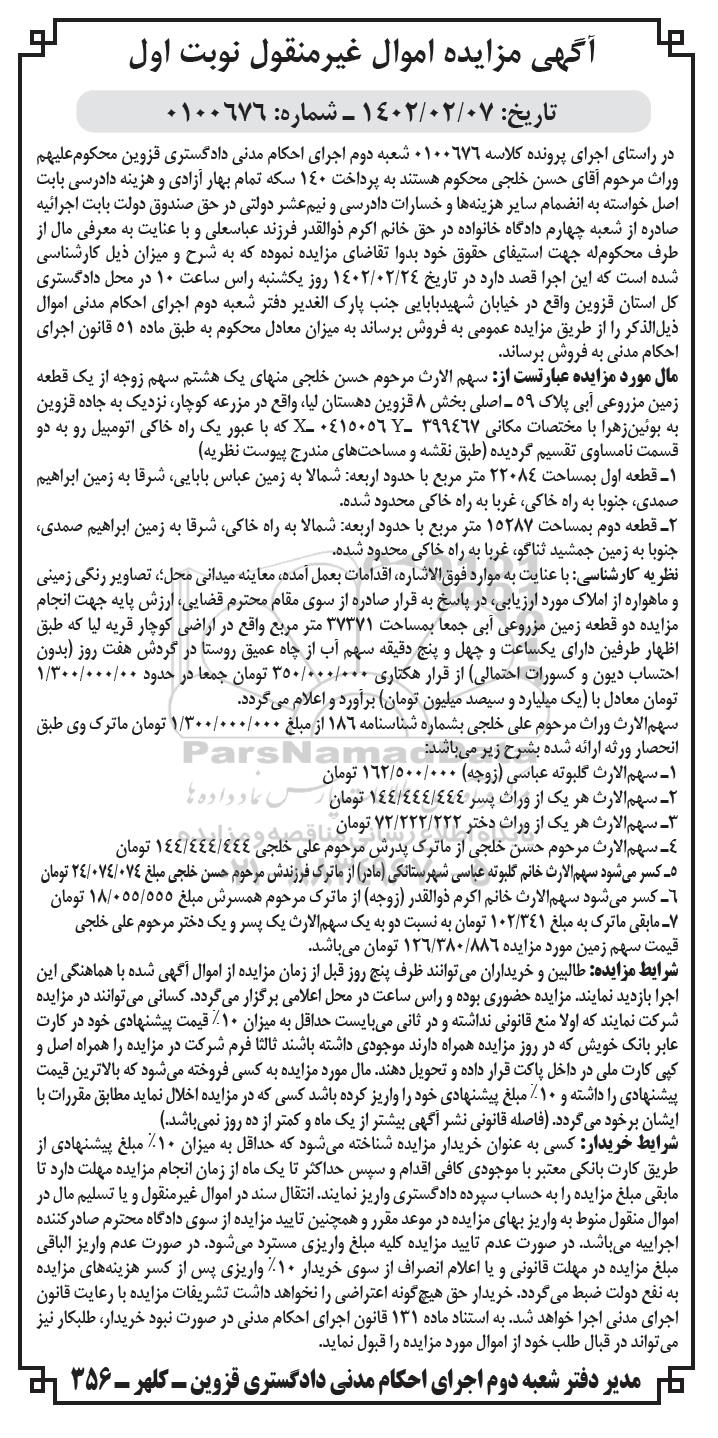 آگهی مزایده اموال غیرمنقول نوبت اول
تاریخ: ۱۴۰۲/۰۲/۰۷ ـ شماره: ۰۱۰۰۶۷۶
در راستای اجرای پرونده کلاسه ۰۱۰۰۶۷۶ شعبه دوم اجرای احکام مدنی دادگستری قزوین محکوم‌علیهم
وراث مرحوم آقای حسن خلجی محکوم هستند به پرداخت ۱۴۰ سکه تمام بهار آزادی و هزینه دادرسی بابت
اصل خواسته به انضمام سایر هزینه‌ها و خسارات دادرسی و نیم‌عشر دولتی در حق صندوق دولت بابت اجرائیه
صادره از شعبه چهارم دادگاه خانواده در حق خانم اکرم ذوالقدر فرزند عباسعلی و با عنایت به معرفی مال از
طرف محکوم‌له جهت استیفای حقوق خود بدوا تقاضای مزایده نموده که به شرح و میزان ذیل کارشناسی
شده است که این اجرا قصد دارد در تاریخ ۱۴۰۲/۰۲/۲۴ روز یکشنبه راس ساعت ۱۰ در محل دادگستری
کل استان قزوین واقع در خیابان شهیدبابایی جنب پارک الغدیر دفتر شعبه دوم اجرای احکام مدنی اموال
ذیل‌الذکر را از طریق مزایده عمومی به فروش برساند به میزان معادل محکوم به طبق ماده ۵۱ قانون اجرای
احکام مدنی به فروش برساند.
مال مورد مزایده عبارتست از: سهم الارث مرحوم حسن خلجی منهای یک هشتم سهم زوجه از یک قطعه
زمین مزروعی آبی پلاک ۵۹ ـ اصلی بخش ۸ قزوین دهستان لیا، واقع در مزرعه کوچار، نزدیک به جاده قزوین
به بوئین‌زهرا با مختصات مکانی ۳۹۹۴۶۷ ـY ۰۴۱۵۰۵۶ ـX که با عبور یک راه خاکی اتومبیل رو به دو
قسمت نامساوی تقسیم گردیده (طبق نقشه و مساحت‌های مندرج پیوست نظریه)
۱ـ قطعه اول بمساحت ۲۲۰۸۴ متر مربع با حدود اربعه: شمالا به زمین عباس بابایی، شرقا به زمین ابراهیم
صمدی، جنوبا به راه خاکی، غربا به راه خاکی محدود شده.
۲ـ قطعه دوم بمساحت ۱۵۲۸۷ متر مربع با حدود اربعه: شمالا به راه خاکی، شرقا به زمین ابراهیم صمدی،
جنوبا به زمین جمشید ثناگو، غربا به راه خاکی محدود شده.
نظریه کارشناسی: با عنایت به موارد فوق‌الاشاره، اقدامات بعمل آمده، معاینه میدانی محل؛، تصاویر رنگی زمینی
و ماهواره از املاک مورد ارزیابی، در پاسخ به قرار صادره از سوی مقام محترم قضایی، ارزش پایه جهت انجام
مزایده دو قطعه زمین مزروعی آبی جمعا بمساحت ۳۷۳۷۱ متر مربع واقع در اراضی کوچار قریه لیا که طبق
اظهار طرفین دارای یکساعت و چهل و پنج دقیقه سهم آب از چاه عمیق روستا در گردش هفت روز (بدون
احتساب دیون و کسورات احتمالی) از قرار هکتاری ۳۵۰/۰۰۰/۰۰۰ تومان جمعا در حدود ۱/۳۰۰/۰۰۰/۰۰
تومان معادل با (یک میلیارد و سیصد میلیون تومان) برآورد و اعلام می‌گردد.
سهم‌الارث وراث مرحوم علی خلجی بشماره شناسنامه ۱۸۶ از مبلغ ۱/۳۰۰/۰۰۰/۰۰۰ تومان ماترک وی طبق
انحصار ورثه ارائه شده بشرح زیر می‌باشد:
ParsNamadData
۱ـ سهم‌الارث گلبوته عباسی (زوجه) ۱۶۲/۵۰۰/۰۰۰ تومان
۲ـ سهم‌الارث هر یک از وراث پسر ۱۴۴/۴۴۴/۴۴۴ تومان
۳ـ سهم‌الارث هر یک از وراث دختر ۷۲/۲۲۲/۲۲۲ تومان
پایگاه اطلاع رسانی مناقصه و مزایده
۴ـ سهم‌الارث مرحوم حسن خلجی از ماترک پدرش مرحوم علی خلجی ۱۴۴/۴۴۴/۴۴۴ تومان
۵ـ کسر می‌شود سهم‌الارث خانم گلبوته عباسی شهرستانکی (مادر) از ماترک فرزندش مرحوم حسن خلجی مبلغ ۲۴/۰۷۴/۰۷۴ تومان
۶ـ کسر می‌شود سهم‌الارث خانم اکرم ذوالقدر (زوجه) از ماترک مرحوم همسرش مبلغ ۱۸/۰۵۵/۵۵۵ تومان
۷ـ مابقی ماترک به مبلغ ۱۰۲/۳۴۱ تومان به نسبت دو به یک سهم‌الارث یک پسر و یک دختر مرحوم علی خلجی
قیمت سهم زمین مورد مزایده ۱۲۶/۳۸۰/۸۸۶ تومان می‌باشد.
شرایط مزایده: طالبین و خریداران می‌توانند ظرف پنج روز قبل از زمان مزایده از اموال آگهی شده با هماهنگی این
اجرا بازدید نمایند. مزایده حضوری بوده و راس ساعت در محل اعلامی برگزار می‌گردد. کسانی می‌توانند در مزایده
شرکت نمایند که اولا منع قانونی نداشته و در ثانی می‌بایست حداقل به میزان ۱۰٪ قیمت پیشنهادی خود در کارت
عابر بانک خویش که در روز مزایده همراه دارند موجودی داشته باشند ثالثا فرم شرکت در مزایده را همراه اصل و
کپی کارت ملی در داخل پاکت قرار داده و تحویل دهند. مال مورد مزایده به کسی فروخته می‌شود که بالاترین قیمت
پیشنهادی را داشته و ۱۰٪ مبلغ پیشنهادی خود را واریز کرده باشد کسی که در مزایده اخلال نماید مطابق مقررات با
ایشان برخود می‌گردد. (فاصله قانونی نشر آگهی بیشتر از یک ماه و کمتر از ده روز نمی‌باشد.)
شرایط خریدار: کسی به عنوان خریدار مزایده شناخته می‌شود که حداقل به میزان ۱۰٪ مبلغ پیشنهادی از
طریق کارت بانکی معتبر با موجودی کافی اقدام و سپس حداکثر تا یک ماه از زمان انجام مزایده مهلت دارد تا
مابقی مبلغ مزایده را به حساب سپرده دادگستری واریز نمایند. انتقال سند در اموال غیرمنقول و یا تسلیم مال در
اموال منقول منوط به واریز بهای مزایده در موعد مقرر و همچنین تایید مزایده از سوی دادگاه محترم صادرکننده
اجراییه می‌باشد. در صورت عدم تایید مزایده کلیه مبلغ واریزی مسترد می‌شود. در صورت عدم واریز الباقی
مبلغ مزایده در مهلت قانونی و یا اعلام انصراف از سوی خریدار ۱۰٪ واریزی پس از کسر هزینه‌های مزایده
به نفع دولت ضبط می‌گردد. خریدار حق هیچ‌گونه اعتراضی را نخواهد داشت تشریفات مزایده با رعایت قانون
اجرای مدنی اجرا خواهد شد. به استناد ماده ۱۳۱ قانون اجرای احکام مدنی در صورت نبود خریدار، طلبکار نیز
می‌تواند در قبال طلب خود از اموال مورد مزایده را قبول نماید.
مدیر دفتر شعبه دوم اجرای احکام مدنی دادگستری قزوین ـ کلهر ـ ۳۵۶